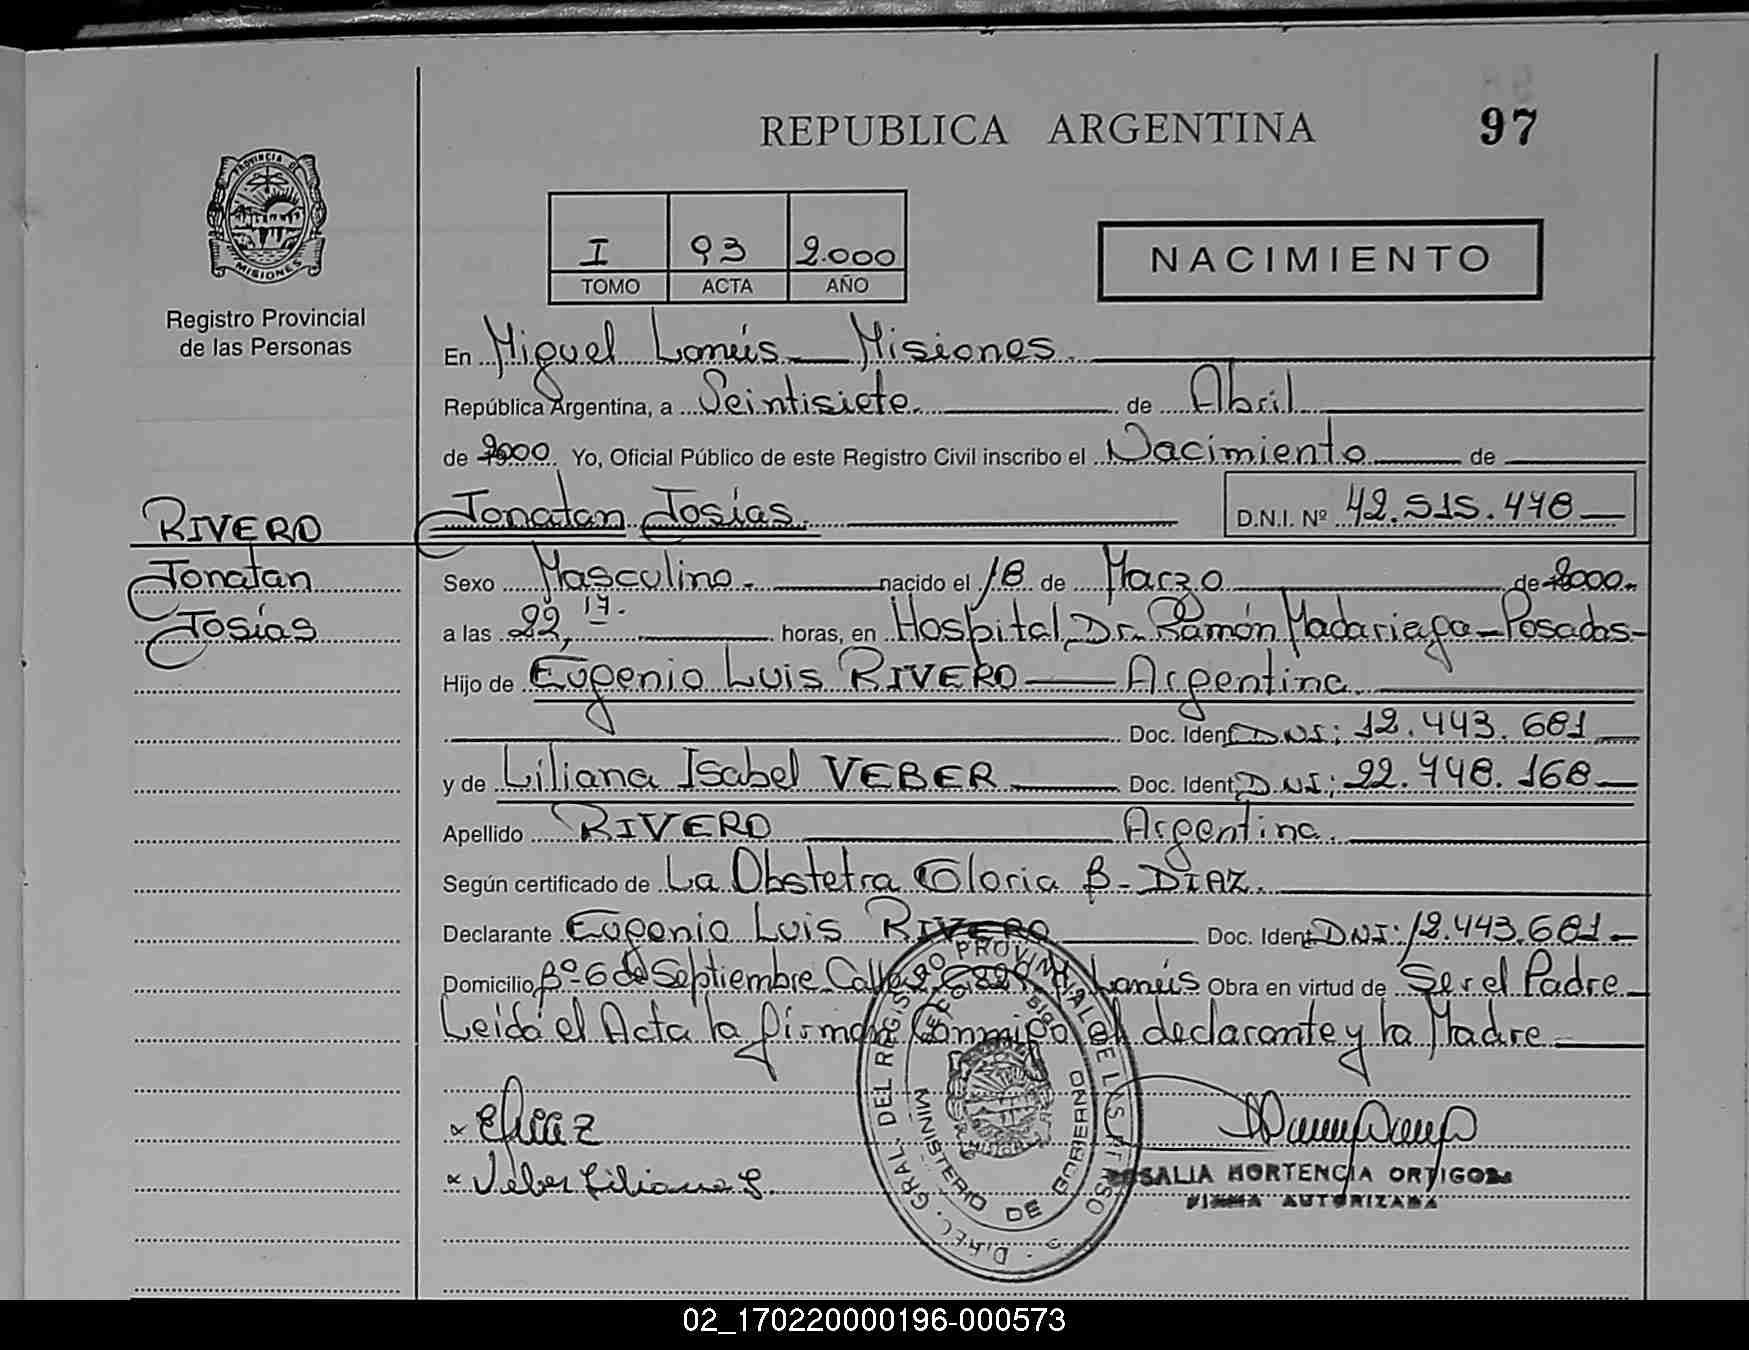 REPUBLICA ARGENTINA
97
PROVINCIA DE
MISIONES
Registro Provincial
de las Personas
I 93 2.000
TOMO ACTA AÑO
NACIMIENTO
En Miguel Lanús - Misiones
República Argentina, a Veintisiete de Abril
de 2000 Yo, Oficial Público de este Registro Civil inscribo el Nacimiento de
RIVERO
Jonatan Josías. D.N.I. Nº 42.515.478
Jonatan
Sexo Masculino. nacido el 18 de Marzo de 2000
Josías
a las 22,17. horas, en Hospital Dr. Ramón Madariaga - Posadas -
Hijo de Eugenio Luis RIVERO Argentina
Doc. Ident DNI: 12.443.681
y de Liliana Isabel VEBER Doc. Ident DNI: 22.448.168
Apellido RIVERO Argentina.
Según certificado de La Obstetra Gloria B. DIAZ.
Declarante Eugenio Luis RIVERO Doc. Ident DNI: 12.443.681
Domicilio Bº 6 de Septiembre Calle Lanús Obra en virtud de Ser el Padre
Leída el Acta la firman Conmigo el declarante y la Madre
Veber Liliana I.
DIREC. GRAL. DEL REGISTRO PROVINCIAL DE LAS PERSO
MINISTERIO DE GOBIERNO
ROSALIA HORTENCIA ORTIGOZA
FIRMA AUTORIZADA
02_170220000196-000573